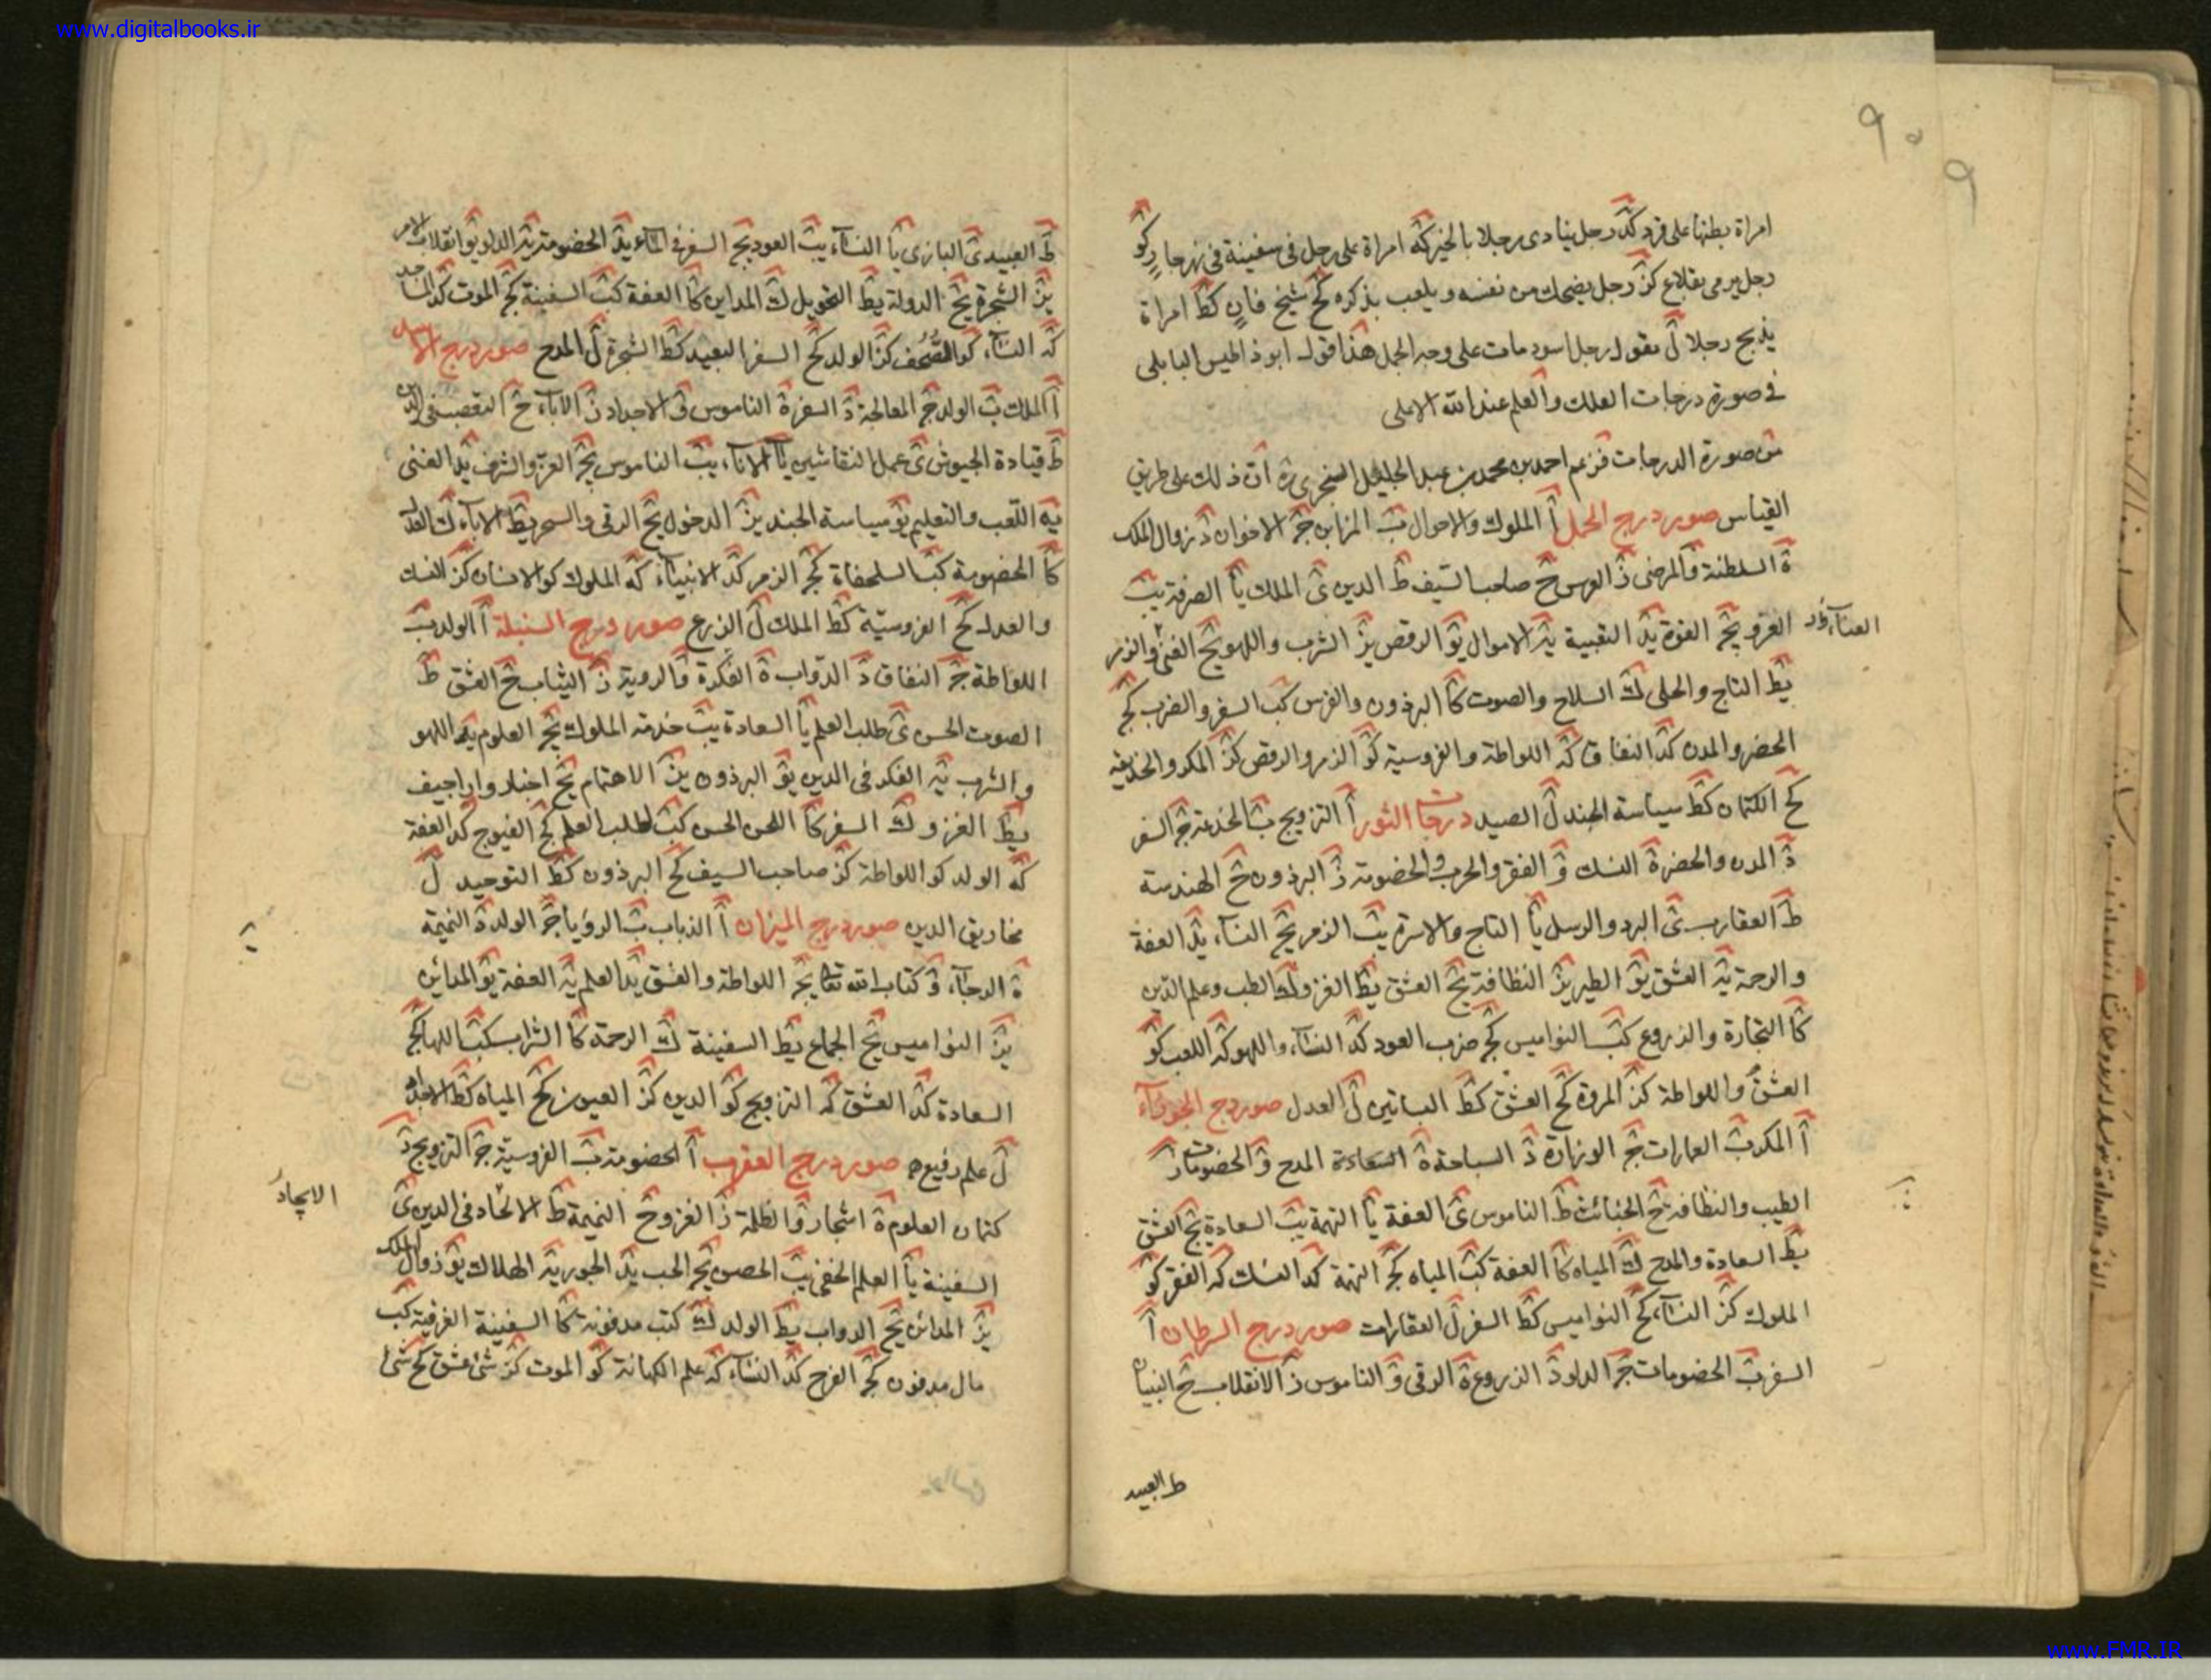 www.digitalbooks.ir
امراة بطنها على قرد كد رجل ينادى رجلا بالخير كه امراة على رجل فى سفينة فى نهر جارٍ كو
رجل يرمى بقلاع كز رجل يضحك من نفسه ويلعب بذكره كح شيخ فانٍ كط امراة
يذبح رجلا ل رجل اسود مات على وجه الجمل هذا قول ابو ذ البابلى
فى صورة درجات الفلك والعلم عند الله الاعلى
صورة الدرجات فزعم احمد بن محمد بن عبد الجليل السجزى ان ذلك على طريق
القياس صور درج الحمل ا الملوك والاحوال ب ج الاخوان د زوال الملك
ه السلطنة و المرضى ز ح صاحب السيف ط الدين ى الملك يا يب
الغزو يج القوة يد يه الاموال يو الرقص يز الشرب واللهو يح الغنى والزمر
العناء
يط التاج والحلى ك السلاح والصوت كا البرذون والفرس كب السفر والضرب كج
الحضر والمدن كد النفاق كه اللواطة والفروسية كو الزمر والرقص كز المكر والخديعة
كح الكتمان كط سياسة الجند ل الصيد درجات الثور ا التزويج ب الخدعة ج السفر
د المدن والحضر ه النسك و الفقر والحرب والخصومة ز البرذون ح الهندسة
ط العقارب ى البرد والرسل يا التاج والاسرة يب الزمر يج النساء يد العفة
والرحمة يه العشق يو الطير يز النظافة يح العشق يط الغزو ك الطب وعلم الدين
كا التجارة والزروع كب النواميس كج ضرب العود كد النساء واللهو كه اللعب كو
العشق واللواطة كز المروة كح العشق كط البساتين ل العدل صور درج الجوزاء
ا المكر ب العمارات ج الوزارة د السباحة ه السعادة المدح و الخصومات ز
الطيب والنظافة ح ط الناموس ى العفة يا التهمة يب السعادة يج العشق
يط السعادة والمدح ك المياه كا العفة كب المياه كج التهمة كد النسك كه الفقر كو
الملوك كز النساء كح النواميس كط السفر ل العقارات صور درج السرطان ا
السفر ب الخصومات ج الداود د الزروع ه الرقى و الناموس ز الانقلاب ح البنيان
ط العبيد
ط العبيد ى البازى يا النساء يب العود يج السفر فى الماء يد الخصومة يه الداود يو انقلاب الامر
يز الشجرة يح الدولة يط التحويل ك المداين كا العفة كب السفينة كج الموت كد المساجد
كه النساء كو المصحف كز الولد كح السفر البعيد كط الشجرة ل المدح صور درج الاسد
ا الملك ب الولد ج المعالجة د السفر ه الناموس و الاجداد ز الاباء ح فى الدين
ط قيادة الجيوش ى عمل النقاشين يا الاناء يب الناموس يج العز والشرف يد الغنى
يه اللعب والتعليم يو سياسة الجند يز الدخول يح الرقى والسحر يط الاباء ك العدل
كا الخصومة كب السلحفاة كج الزمر كد الانبياء كه الملوك كو الانسان كز النسك
والعدل كح الفروسية كط الملك ل الزرع صور درج السنبلة ا الولد ب
اللواطة ج النفاق د الدواب ه الفكرة و الروية ز الثياب ح العشق ط
الصوت الحسن ى طلب العلم يا السعادة يب خدمة الملوك يج العلوم يد اللهو
والشرب يه الفكر فى الدين يو البرذون يز الاهتمام يح اخبار واراجيف
يط الغزو ك السفر كا اللحن الحسن كب طلب العلم كج الفيوج كد العفة
كه الولد كو اللواطة كز صاحب السيف كح البرذون كط التوحيد ل
مخاريق الدين صور درج الميزان ا الذباب ب الرؤيا ج الولد ه النميمة
ه الرجاء و كتاب الله تعا يج اللواطة والفسق يد العلم يه العفة يو المدائن
يز النواميس يح الجماع يط السفينة ك الرحمة كا الشراب كب كج
السعادة كد العشق كه التزويج كو الدين كز العيون كح المياه كط الاجداد
ل علم رفيع صور درج العقرب ا الخصومة ب الفروسية ج التزويج د
كتمان العلوم ه اشجار و الظلمة ز الغزو ح النميمة ط الالحاد فى الدين ى
الايجاد
السفينة يا العلم الخفى يب الحصن يج الحب يد يه الهلاك يو زوال الملك
يز المدائن يح الدواب يط الولد ك كتب مدفونة كا السفينة الغرقية كب
مال مدفون كج الفرح كد النساء كه علم الكهانة كو الموت كز شئ عشق كح شئ
www.FMR.IR